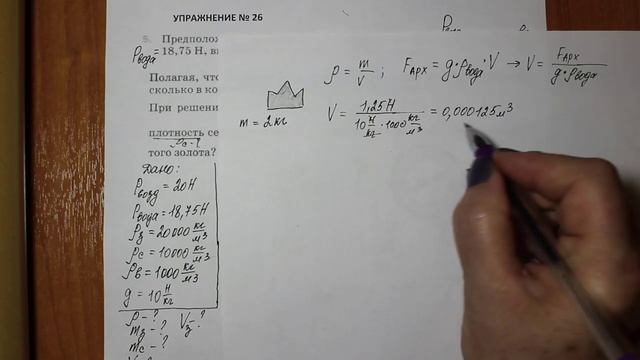 УПРАЖНЕНИЕ № 26
5. Предполож
Pвода = 18,75 Н, вы
Полагая, что
сколько в ко
При решени
плотность се
ρс - ?
того золота?
Дано:
Pвозд = 20Н
Pвода = 18,75Н
ρз = 20000 кг/м³
ρс = 10000 кг/м³
ρв = 1000 кг/м³
g = 10 Н/кг
ρ - ?
mз - ? Vз - ?
mс - ?
ρ = m/V ; Fарх = g·ρвода·V → V = Fарх/g·ρвода
m = 2 кг
V = 1,25Н/10 Н/кг · 1000 кг/м³ = 0,000125 м³